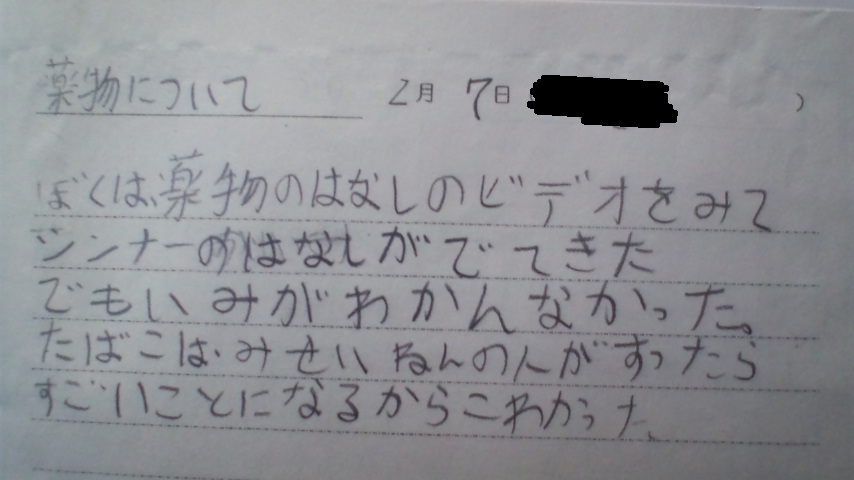 薬物について 2月 7日 )
ぼくは、薬物のはなしのビデオをみて
シンナーのはなしがでてきた
でもいみがわかんなかった。
たばこは、みせいねんの人がすったら
すごいことになるからこわかった、